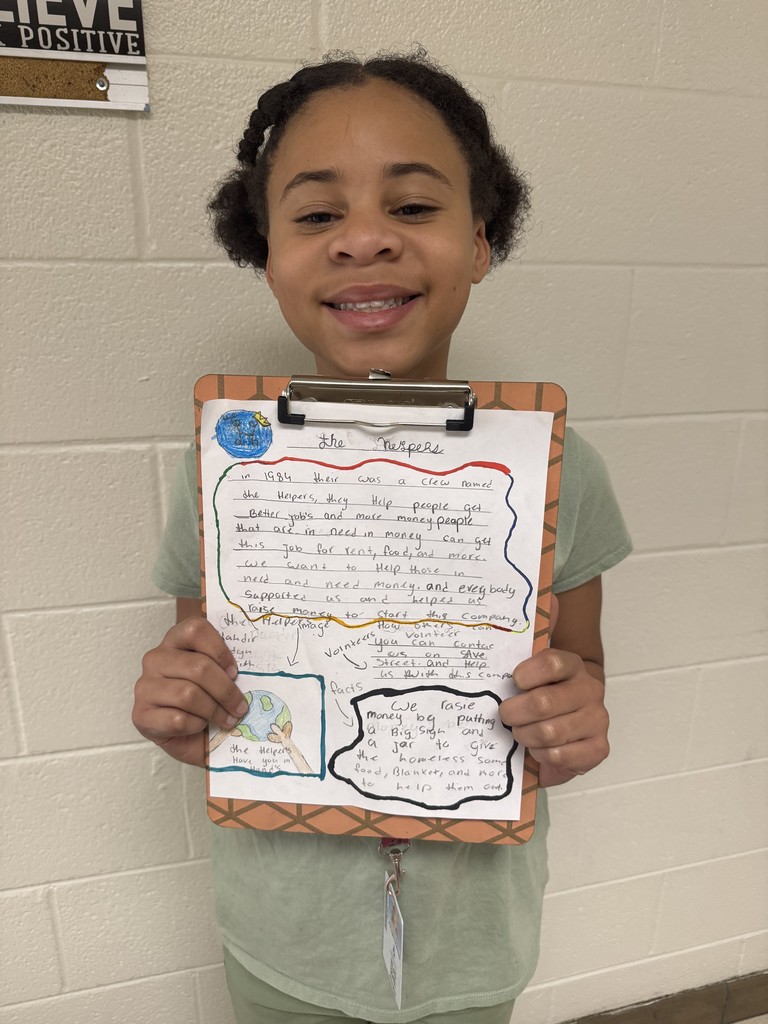 LIEVE
K POSITIVE
the Helpers
in 1984 their was a crew named
the Helpers, they Help people get
Better job's and more money,people
that are in need in money can get
this job for rent, food, and more.
we want to Help those in
need and need money. and everybody
supported us and helped us
raise money to start this company.
the Helper
image
Volunteers
How others can
Volnteer
you can contac
us on SAVE
Street and Help
us with this compa
facts
the Helpers
Have you in
Hand's
We rasie
money by putting
a Big sign and
a jar to give
the homeless some
food, Blanket, and more
to help them out.